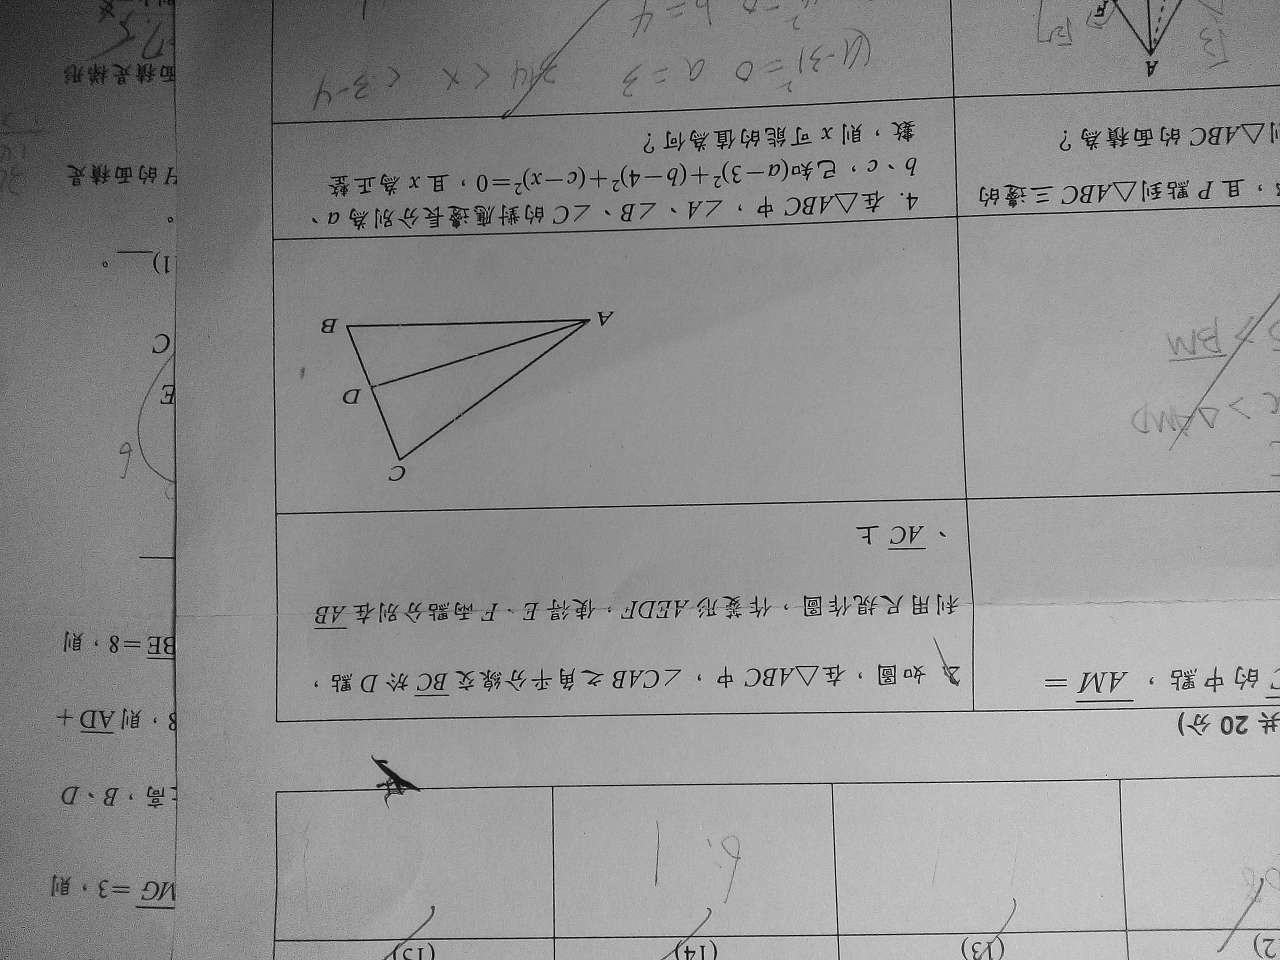 (2)
(13)
(14)
(15)
共 20 分)
C的中點，AM =
2. 如圖，在△ABC 中，∠CAB 之角平分線交 BC 於 D 點，
利用尺規作圖，作菱形 AEDF，使得 E、F 兩點分別在 AB
、AC 上
C
D
A
B
，且 P 點到△ABC 三邊的
△ABC 的面積為？
A
F
4. 在△ABC 中，∠A、∠B、∠C 的對應邊長分別為 a、
b、c，已知(a−3)²+(b−4)²+(c−x)²=0，且 x 為正整
數，則 x 可能的值為何？
a=3
b=4
< x < 3-4
BM
MG =3，則
高，B、D
，則 AD +
BE =8，則
6
E
C
1) 。
。
H 的面積是
面積是梯形